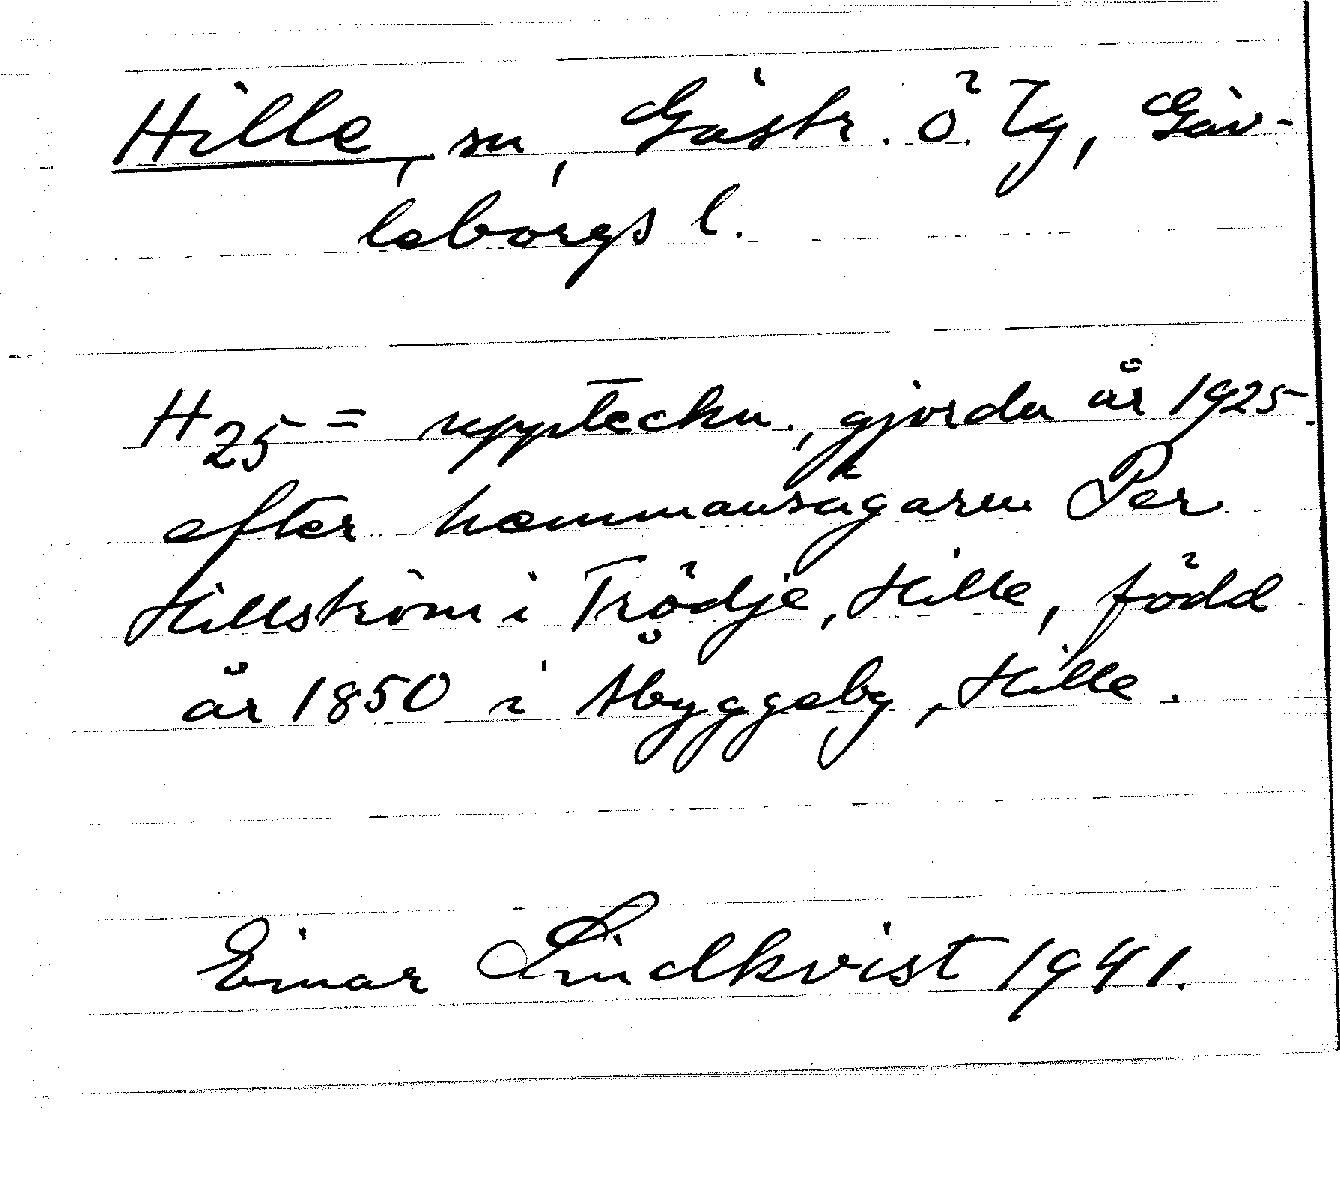 Hille, sn, Gästr. ö. Tg, Gäv-
leborgs l.
H25 = uppteckn., gjorda år 1925
efter hemmansägaren Per
Hillström i Trödje, Hille, född
år 1850 i Åbyggeby, Hille.
Einar Lindkvist 1941.